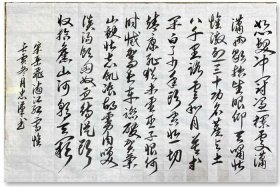 怒髮冲冠憑欄處瀟
瀟雨歇抬望眼仰天長嘯壯
懷激烈三十功名塵与土
八千里路雲和月莫等
閒白了少年頭空悲切
靖康耻猶未雪臣子恨何
時滅駕長車踏破賀蘭
山缺壯志飢餐胡虜肉笑
談渴飲匈奴血待從頭
收拾舊山河朝天闕
宋岳飛滿江紅